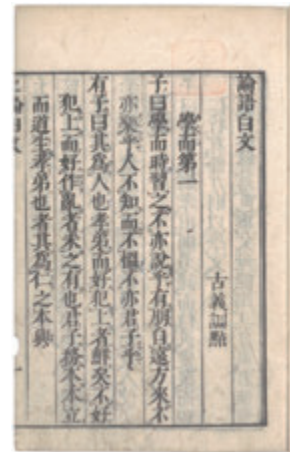 論語白文
古義訓點
學而第一
子曰學而時習之不亦說乎有朋自遠方來不
亦樂乎人不知而不慍不亦君子乎
有子曰其爲人也孝弟而好犯上者鮮矣不好
犯上而好作亂者未之有也君子務本本立
而道生孝弟也者其爲仁之本與